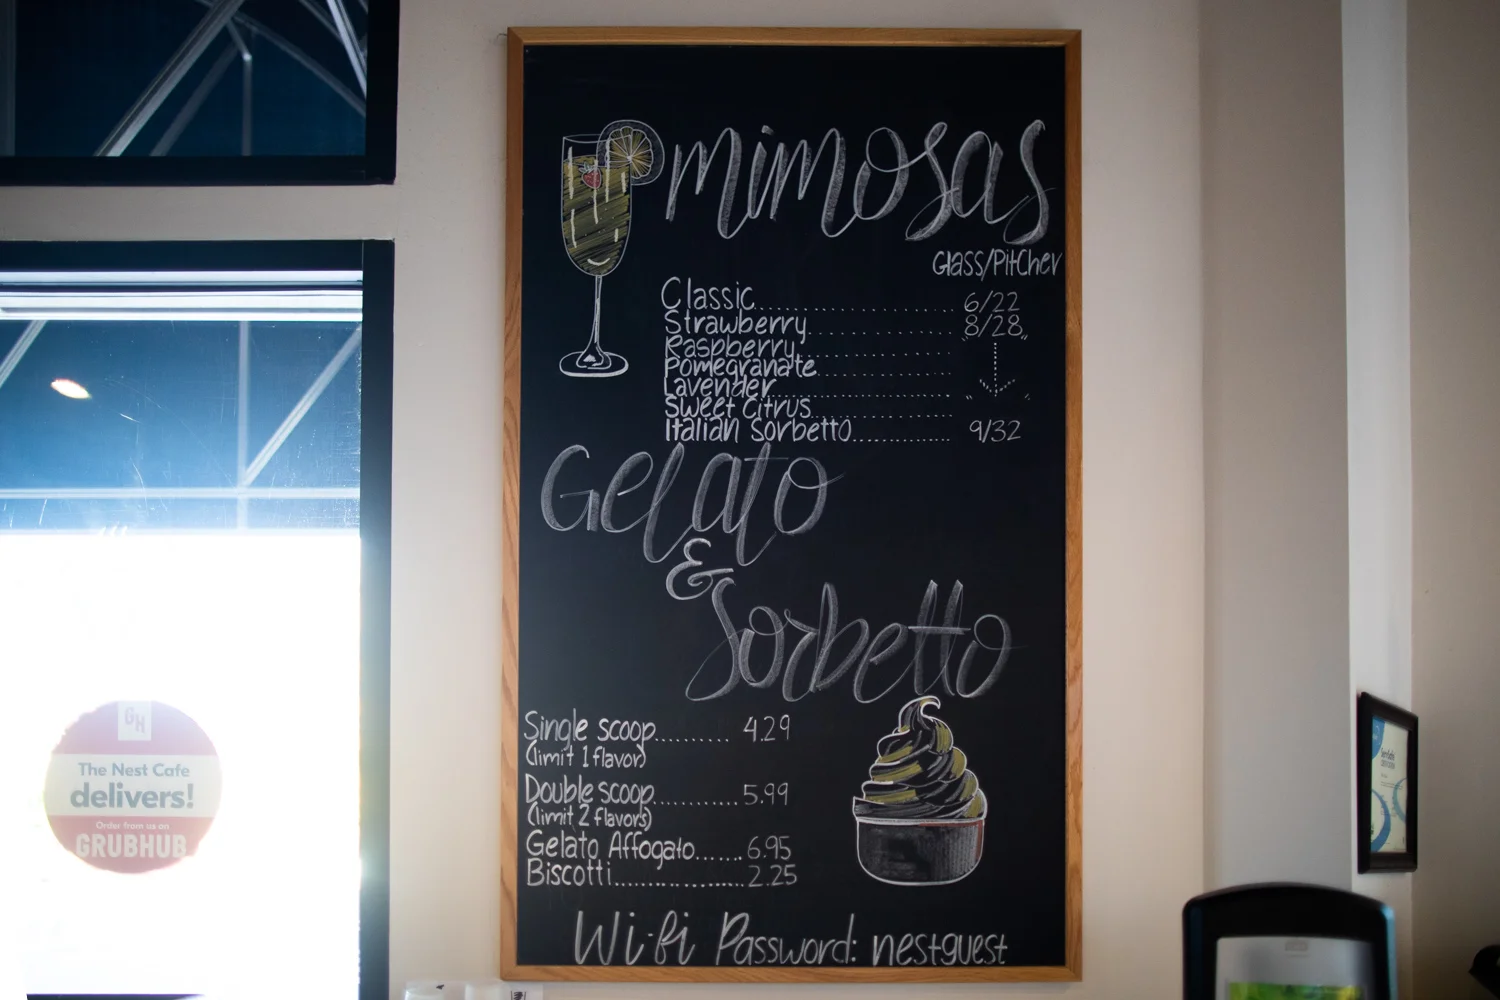 mimosas
Glass/Pitcher
Classic........................ 6/22
Strawberry.................... 8/28
Raspberry....................
Pomegranate..................
Lavender.....................
Sweet Citrus.................
Italian Sorbetto............. 9/32
Gelato
&
Sorbetto
Single scoop.......... 4.29
(limit 1 flavor)
Double scoop........... 5.99
(limit 2 flavors)
Gelato Affogato....... 6.95
Biscotti.................. 2.25
Wi-fi Password: nestguest
GH
The Nest Cafe
delivers!
Order from us on
GRUBHUB